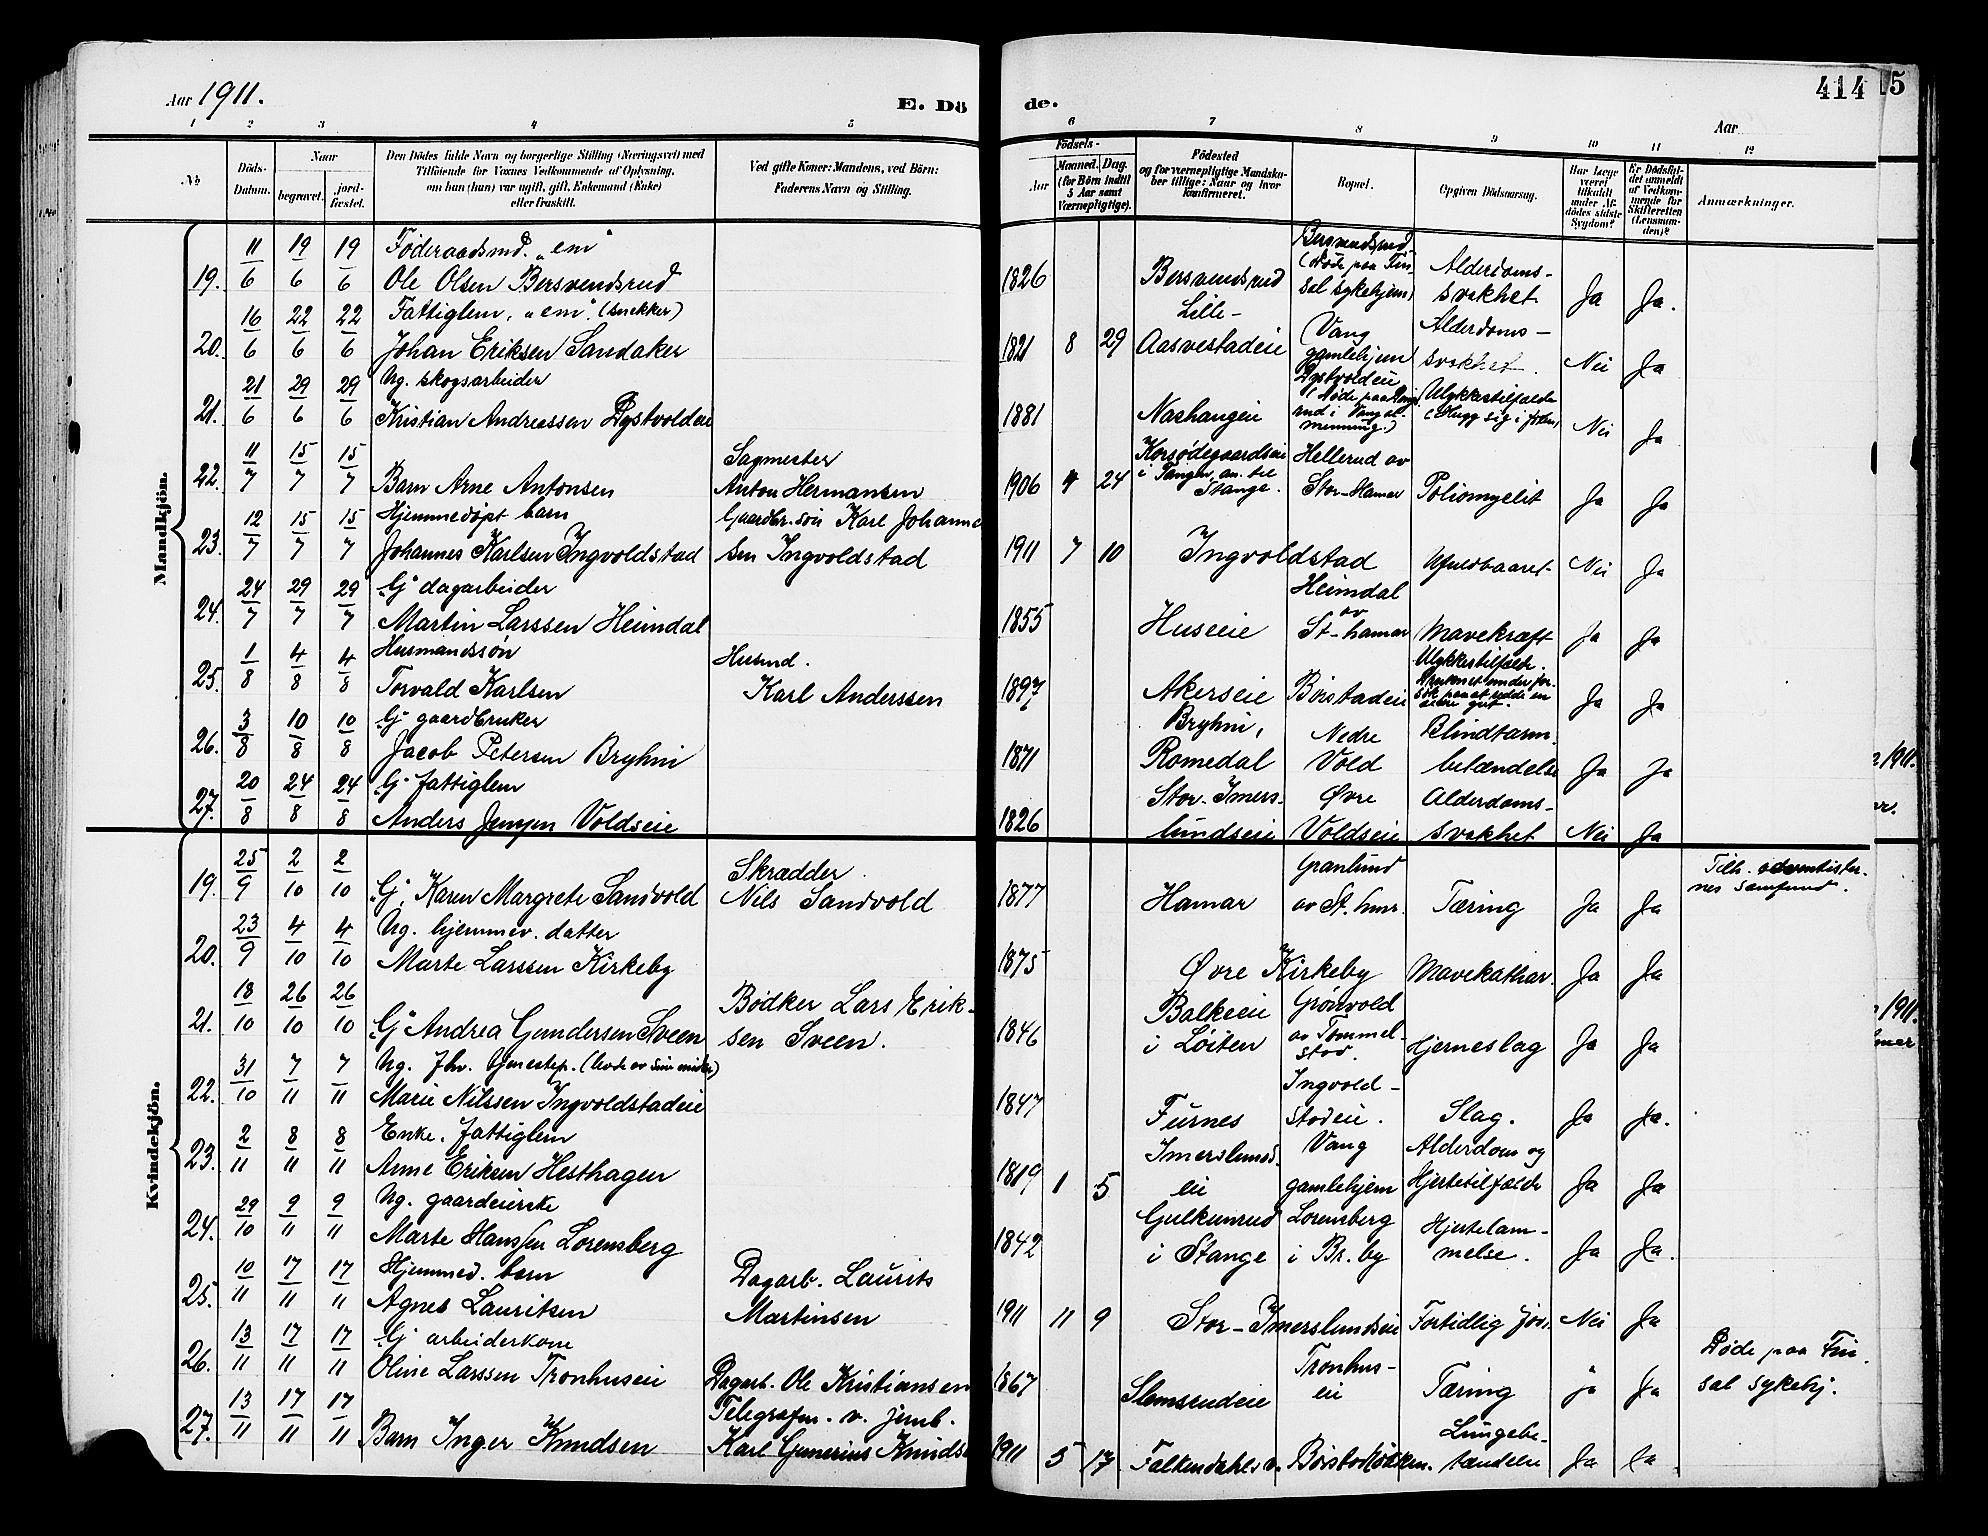 Aar 1911.
E. Dö de.
414
15
Aar
1 2 3 4 5 6 7 8 9 10 11 12
No
Döds-Datum.
Naar
begravet.
jord-fæstet.
Den Dödes fulde Navn og borgerlige Stilling (Næringsvei) med
Tilföiende for Voxnes Vedkommende af Oplysning,
om han (hun) var ugift, gift, Enkemand (Enke)
eller fraskilt.
Ved gifte Koner: Mandens, ved Börn:
Faderens Navn og Stilling.
Födsels-
Aar
Maaned. Dag.
(for Börn indtil
5 Aar samt
Værnepligtige).
Födested
og for værnepligtige Mandska-
ber tillige: Naar og hvor
konfirmeret.
Bopæl.
Opgiven Dödsaarsag.
Har Læge
været
tilkaldt
under Af-
dödes sidste
Sygdom?
Er Dödsfal-
det anmeldt
af Vedkom-
mende for
Skifteretten
(Lensman-
den)?
Anmærkninger.
Mandkjön.
19. 11/6 19/6 19/6 Föderaadsmd. „em"
Ole Olsen Bersvendsrud
1826 Bersvendsrud Bersvendsrud (Døde paa Fur-
sal sykehjem) Alderdoms-
svakhet Ja Ja.
20. 16/6 22/6 22/6 Fattiglem, „em". (snekker)
Johan Eriksen Sandaker
1821 8 29 Lille-
Aasvestadeie Vang
gamlehjem Alderdoms-
svakhet. Nei Ja
21. 21/6 29/6 29/6 Ug. skogsarbeider
Kristian Andreassen Dystvoldeie
1881 Nashaugeie Dystvoldeie
(Døde paa
rud i Vang al-
menning.) Ulykkestilfælde
(Hugg sig i foten) Nei Ja
22. 11/7 15/7 15/7 Barn Arne Antonsen
Sagmester
Anton Hermansen
1906 4 24 Korsødegaardseie
i Tangen, an. til
Stange. Hellerud av
Stor-Hamar Poliomyelit Ja Ja
23. 12/7 15/7 15/7 Hjemmedøpt barn
Johannes Karlsen Ingvoldstad
Gaardbr. søn Karl Johanne
sen Ingvoldstad
1911 7 10 Ingvoldstad Ufuldbaaret Nei Ja
24. 24/7 29/7 29/7 „G" dagarbeider
Martin Larssen Heimdal
1855 Huseie Heimdal
av
St-hamar Mavekræft Ja Ja
25. 1/8 4/8 4/8 Husmandssøn
Torvald Karlsen
Husmd.
Karl Anderssen
1897 Akerseie Børstadeie Ulykkestilfælde.
Druknet under for-
søk paa at redde en
anden gut. Ja Ja
26. 3/8 10/8 10/8 „G" gaardbruker
Jacob Petersen Bryhni
1871 Bryhni,
Romedal Nedre
Vold Blindtarm-
betændelse Ja Ja
27. 20/8 24/8 24/8 „G" fattiglem
Anders Jensen Voldseie
1826 Stor-Imers-
lundseie Øvre
Voldseie Alderdoms-
svakhet Nei Ja
Kvindekjön.
19. 25/9 2/10 2/10 „G", Karen Margrete Sandvold
Skrædder
Nils Sandvold
1877 Hamar Granlund
av St. hmr. Tæring Ja Ja Tilh. adventister-
nes samfund.
20. 23/9 4/10 4/10 Ug. hjemmev. datter
Marte Larssen Kirkeby
1875 Øvre Kirkeby Mavekathar. Ja Ja
21. 18/10 26/10 26/10 „G" Andrea Gundersen Sveen
Bødker Lars Erik-
sen Sveen.
1846 Balkeeie
i Løiten Grønvold
av Tommel-
stad. Hjerneslag Ja Ja
22. 31/10 7/11 7/11 Ug. fhv. tjenestep. (levde av sine midler)
Marie Nilssen Ingvoldstadeie
1847 Furnes Ingvold-
stadeie. Slag. Ja Ja.
23. 2/11 8/11 8/11 Enke. fattiglem
Anne Eriksen Hesthagen
1819 1 5 Imerslunds-
eie Vang
gamlehjem Alderdom og
Hjertetilfælde Ja Ja
24. 29/10 9/11 9/11 Ug. gaardeierske
Marte Hanssen Lorensberg
1842 Gulkunrud
i Stange Lorensberg
i Br. by Hjertelam-
melse. Ja Ja.
25. 10/11 17/11 17/11 Hjemmed. barn
Agnes Lauritsen
Dagarb. Laurits
Martinsen
1911 11 9 Stor-Imerslundseie Fortidlig føds. Nei Ja
26. 13/11 17/11 17/11 „G" arbeiderkone
Oline Larssen Tronhuseie
Dagarb. Ole Kristiansen
1867 Slemsrudeie Tronhus-
eie Tæring Ja Ja Døde paa Fur-
sal sykehj.
27. 13/11 17/11 17/11 Barn Inger Knudsen
Telegrafm. v. jernb.
Karl Gunerius Knuds
1911 5 17 Falkendahls v. Børstad Lungebe-
tændelse Ja Ja
1911.
1911.